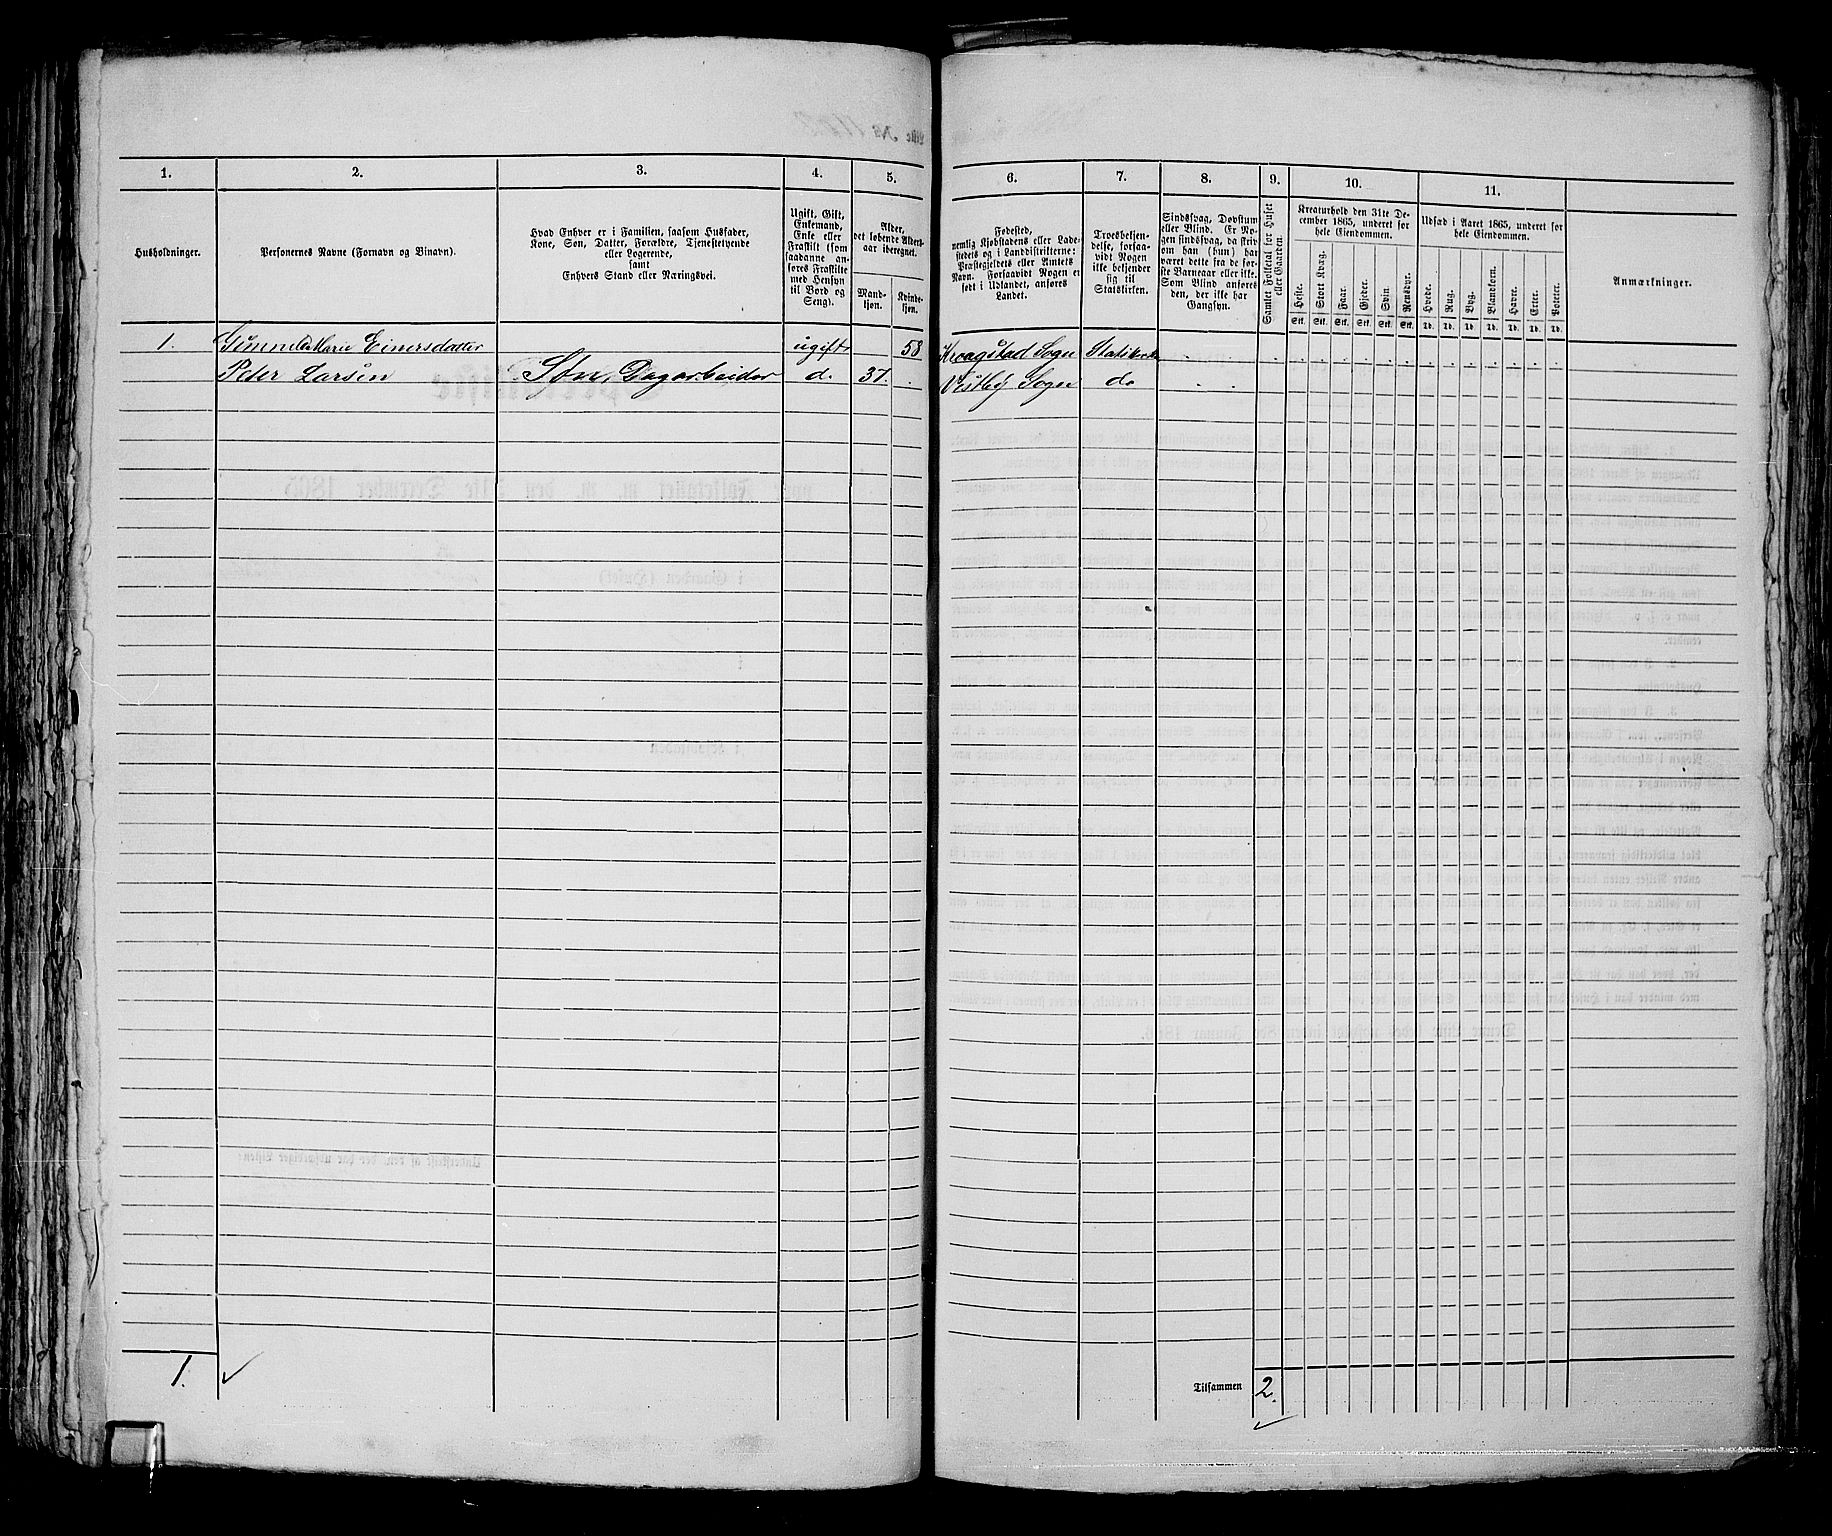 1.
2.
3.
4.
5.
6.
7.
8.
9.
10.
11.
Husholdninger.
Personernes Navne (Fornavn og Binavn).
Hvad Enhver er i Familien, saasom Husfader,
Kone, Søn, Datter, Forældre, Tjenestetyende
eller Logerende,
samt
Enhvers Stand eller Næringsvei.
Ugift, Gift,
Enkemand,
Enke eller
Fraskilt (som
saadanne an-
føres Fraskilte
med Hensyn
til Bord og
Seng).
Alder,
det løbende Alders-
aar iberegnet.
Mand-
kjøn.
Kvinde-
kjøn.
Fødested,
nemlig Kjøbstadens eller Lade-
stedets og i Landdistrikterne:
Præstegjeldets eller Amtets
Navn. Forsaavidt Nogen er
født i Udlandet, anføres
Landet.
Troesbekjen-
delse, forsaa-
vidt Nogen
ikke bekjender
sig til
Statskirken.
Sindssvag, Døvstum
eller Blind. Er No-
gen sindssvag, da skriv
om han (hun) har
været dette fra de før-
ste Barneaar eller ikke.
Som Blind anføres
den, der ikke har
Gangsyn.
Samlet Folketal for Huset
eller Gaarden.
Kreaturhold den 31te De-
cember 1865, underet for
hele Eiendommen.
Heste.
Stort Kvæg.
Faar.
Gjeder.
Svin.
Rensdyr.
Stk. Stk. Stk. Stk. Stk. Stk.
Udsæd i Aaret 1865, underet for
hele Eiendommen.
Hvede.
Rug.
Byg.
Blandkorn.
Havre.
Erter.
Poteter.
Td. Td. Td. Td. Td. Td. Td.
Anmærkninger.
1. Marie Einersdatter ugift 58 Kraagstad Sogn Statskirke
Peter Larsen Søn, Dagarbeider d. 31. Vestby Sogn do
1.
Tilsammen 2.